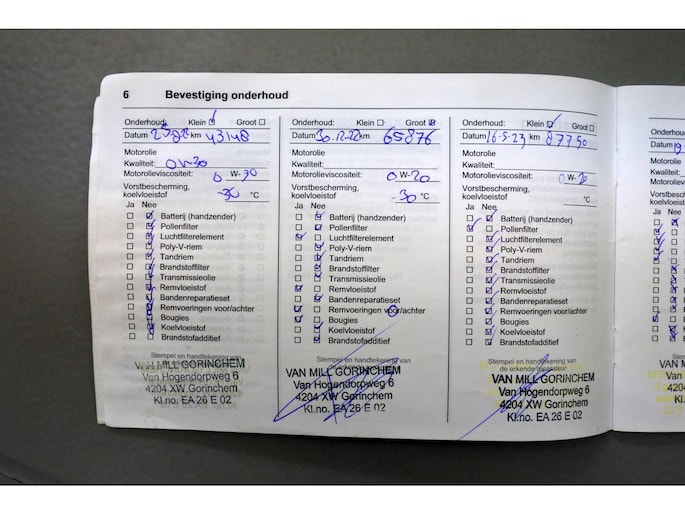 6 Bevestiging onderhoud
Onderhoud: Klein Groot
Datum km 43148
Motorolie
Kwaliteit: 0W30
Motorolieviscositeit: 0 W-30
Vorstbescherming,
koelvloeistof -30 °C
Ja Nee
Batterij (handzender)
Pollenfilter
Luchtfilterelement
Poly-V-riem
Tandriem
Brandstoffilter
Transmissieolie
Remvloeistof
Bandenreparatieset
Remvoeringen voor/achter
Bougies
Koelvloeistof
Brandstofadditief
Stempel en handtekening van
VAN MILL GORINCHEM
Van Hogendorpweg 6
4204 XW Gorinchem
Kl.no. EA 26 E 02
Onderhoud: Klein Groot
Datum 30-12-22 km 65876
Motorolie
Kwaliteit:
Motorolieviscositeit: 0 W-20
Vorstbescherming,
koelvloeistof -30 °C
Ja Nee
Batterij (handzender)
Pollenfilter
Luchtfilterelement
Poly-V-riem
Tandriem
Brandstoffilter
Transmissieolie
Remvloeistof
Bandenreparatieset
Remvoeringen voor/achter
Bougies
Koelvloeistof
Brandstofadditief
Stempel en handtekening van
VAN MILL GORINCHEM
Van Hogendorpweg 6
4204 XW Gorinchem
Kl.no. EA 26 E 02
Onderhoud: Klein Groot
Datum 16-5-23 km 87750
Motorolie
Kwaliteit:
Motorolieviscositeit: 0 W-20
Vorstbescherming,
koelvloeistof °C
Ja Nee
Batterij (handzender)
Pollenfilter
Luchtfilterelement
Poly-V-riem
Tandriem
Brandstoffilter
Transmissieolie
Remvloeistof
Bandenreparatieset
Remvoeringen voor/achter
Bougies
Koelvloeistof
Brandstofadditief
Stempel en handtekening van
de erkende reparateur
VAN MILL GORINCHEM
Van Hogendorpweg 6
4204 XW Gorinchem
Kl.no. EA 26 E 02
Datum
Motorolie
Kwaliteit:
Ja